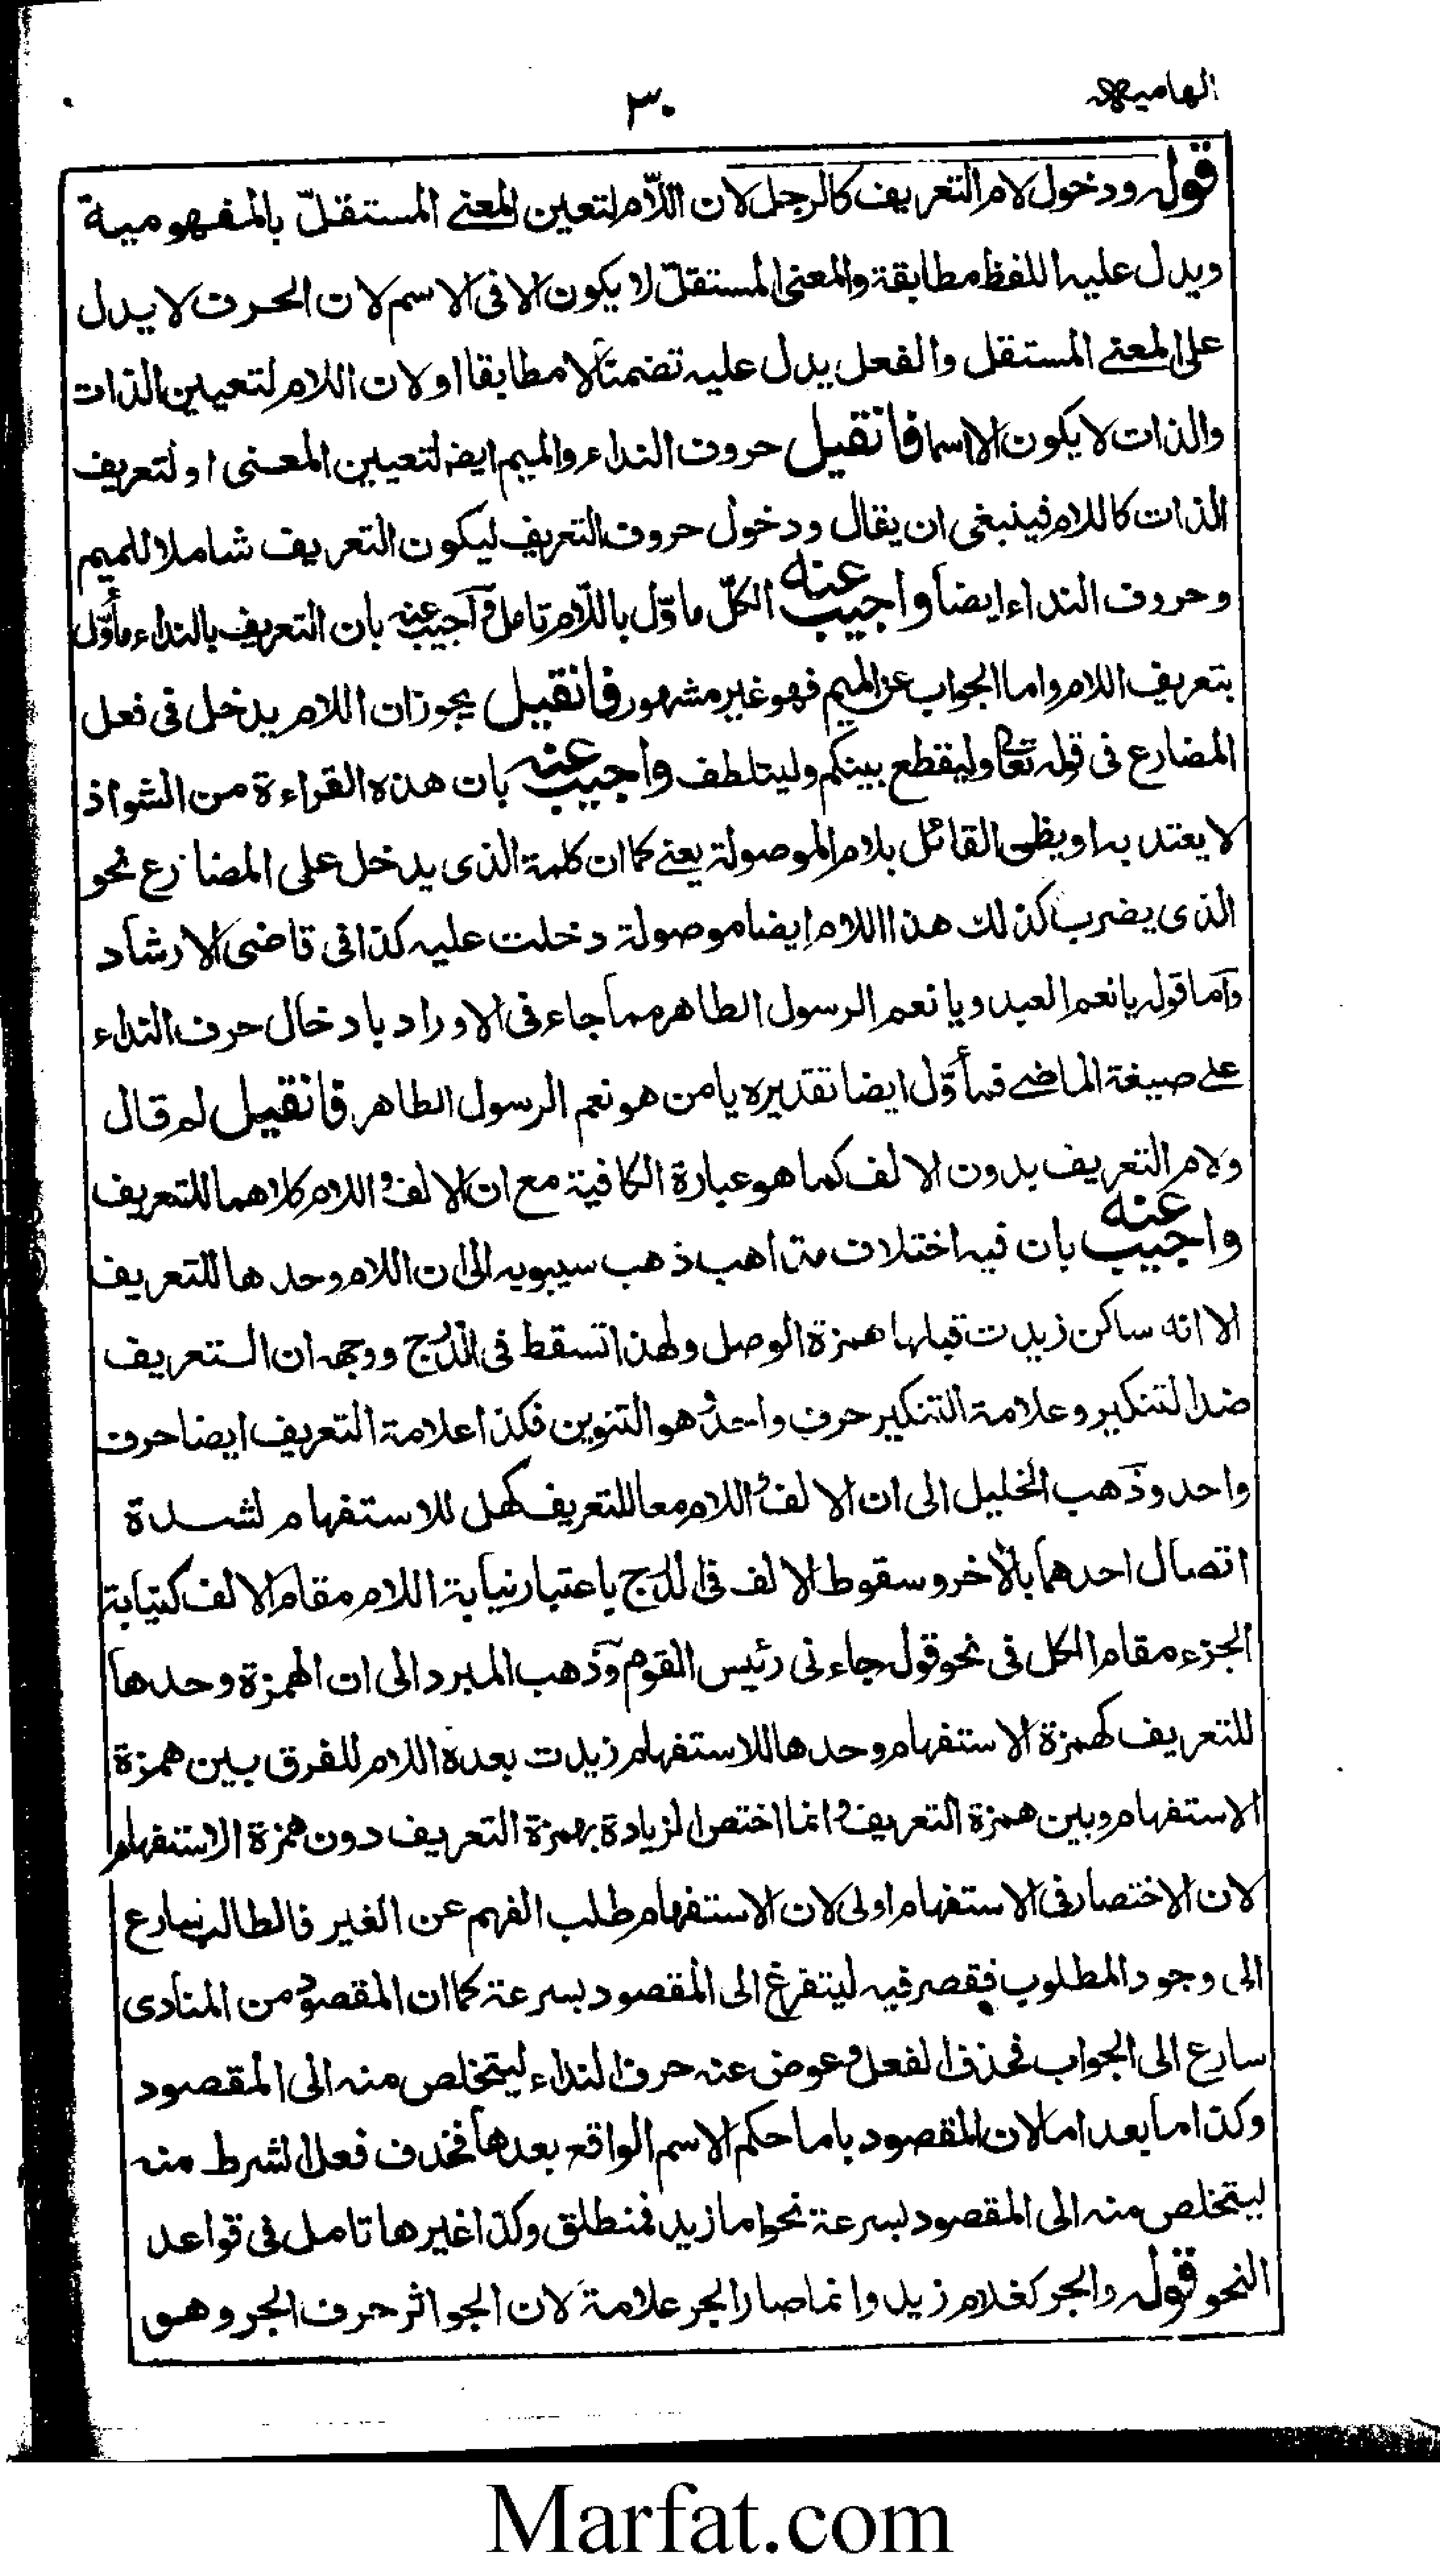 الهاميه
٣٠
قوله ودخول لام التعريف كالرجل لان اللّام لتعين المعنے المستقلّ بالمفهومية
ويدل عليه اللفظ مطابقة والمعنى المستقلّ لا يكون الا فى الاسم لان الحرف لا يدل
على المعنے المستقل والفعل يدل عليه تضمنًا لا مطابقا اولان اللام لتعيين الذات
والذات لا يكون الا اسما فانقيل حروف النداء والميم ايضا لتعيين المعنى او لتعريف
الذات كاللام فينبغى ان يقال ودخول حروف التعريف ليكون التعريف شاملا للميم
وحروف النداء ايضا واجيب عنه الكلّ ماوّل باللّام تامل وآجيب عنه بان التعريف بالنداء مأوّل
بتعريف اللام واما الجواب عن الميم فهو غير مشهور فانقيل يجوز ان اللام يدخل فى فعل
المضارع فى قوله تعا وليقطع بينكم وليتلطف واجيب عنه بان هذه القراءة من الشواذ
لا يعتد به او القائل بلام الموصولة يعنے كما ان كلمة الذى يدخل على المضارع نحو
الذى يضرب كذلك هذا اللام ايضا موصولة دخلت عليه كذا فى قاضى الارشاد
وآما قوله يا نعم العبد ويا نعم الرسول الطاهر مما جاء فى الاوراد بادخال حرف النداء
علے صيغة الماضے فمأوّل ايضا تقديره يا من هو نعم الرسول الطاهر فانقيل لم قال
ولام التعريف بدون الالف كما هو عبارة الكافية مع ان الالف واللام كلاهما للتعريف
واجيب عنه بان فيه اختلاف مذاهب ذهب سيبويه الى ان اللام وحدها للتعريف
الا انه ساكن زيدت قبلها همزة الوصل ولهذا تسقط فى الدَرج ووجهه ان التعريف
ضد التنكير وعلامة التنكير حرف واحد وهو التنوين فكذا علامة التعريف ايضا حرف
واحد وذهب الخليل الى ان الالف واللام معا للتعريف كهل للاستفهام لشدة
اتصال احدهما بالأخر وسقوط الالف فى الدَرج باعتبار نيابة اللام مقام الالف كنيابة
الجزء مقام الكل فى نحو قول جاءنى رئيس القوم وذهب المبرد الى ان الهمزة وحدها
للتعريف كهمزة الاستفهام وحدها للاستفهام زيدت بعده اللام للفرق بين همزة
الاستفهام وبين همزة التعريف وانما اختص الزيادة بهمزة التعريف دون همزة الاستفهام
لان الاختصار فى الاستفهام اولى لان الاستفهام طلب الفهم عن الغير فالطالب يسارع
الى وجود المطلوب فقصر فيه ليتفرغ الى المقصود بسرعة كما ان المقصود من المنادى
سارع الى الجواب فحذف الفعل وعوض عنه حرف النداء ليتخلص منه الى المقصود
وكذا ما بعد اما لان المقصود باما حكم الاسم الواقع بعدها فحذف فعل الشرط منه
ليتخلص منه الى المقصود بسرعة نحو اما زيد فمنطلق وكذا غيرها تامل فى قواعد
النحو قوله والجر كغلام زيد وانما صار الجر علامة لان الجر اثر حرف الجر وهو
Marfat.com